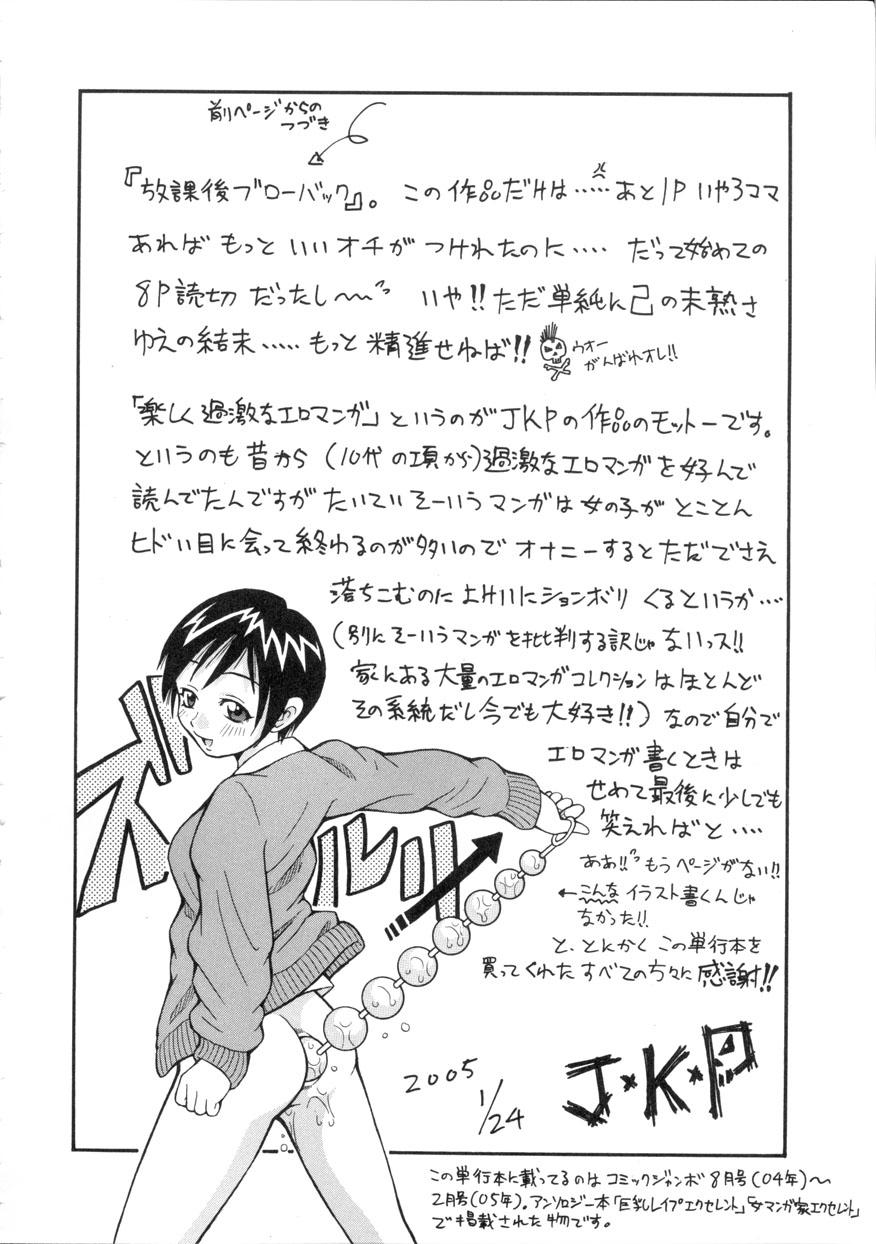 前ページからの
つづき
『放課後ブローバック』。この作品だけは……あと1Pいやろママ
あればもっといいオチがつけれたのに…‥だって始めての
8P読切だったし〜〜 いや!!ただ単純に己の未熟さ
ゆえの結末……もっと精進せねば!!
ウオー
がんばれオレ!!
「楽しく過激なエロマンガ」というのがJKPの作品のモットーです。
というのも昔から(10代の項から)過激なエロマンガを好んで
読んでたんですがたいていそーいうマンガは女の子がとことん
ヒドい目に会って終わるのが多いのでオナニーするとただでさえ
落ちこむのによけいにションボリくるというか…‥
(別にそーいうマンガを批判する訳じゃないっス!!
家にある大量のエロマンガコレクションはほとんど
その系統だし今でも大好き!!)なので自分で
エロマンガ書くときは
せめて最後に少しでも
笑えればと…‥
ああ!!もうページがない!!
←こんなイラスト書くんじゃ
なかった!!
と、とにかくこの単行本を
買ってくれたすべての方々に感謝!!
ズルルリ
2005 1/24
J・K・P
この単行本に載ってるのはコミックジャンボ8月号(04年)〜
2月号(05年)。アンソロジー本「巨乳レイプエクセレント」「女マンガ家エクセレント」
で掲載された物です。